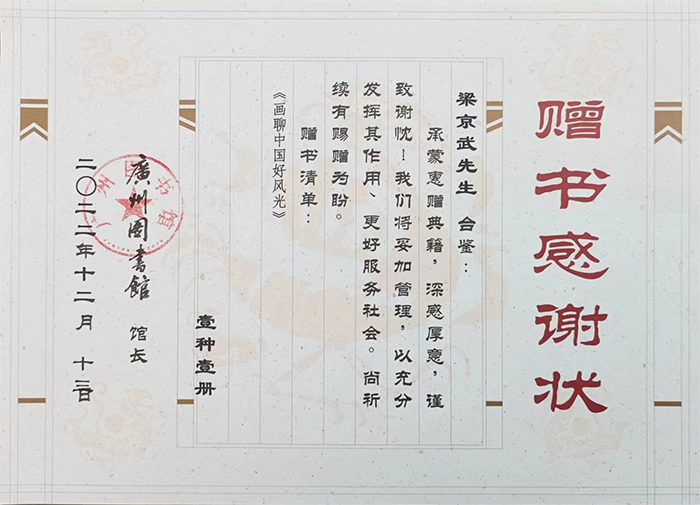 赠书感谢状
梁京武先生 台鉴：
承蒙惠赠典籍，深感厚意，谨
致谢忱！我们将妥加管理，以充分
发挥其作用、更好服务社会。尚祈
续有赐赠为盼。
赠书清单：
《画聊中国好风光》
壹种壹册
廣州图書館 馆长
二〇二二年十二月 十三日
广州图书馆